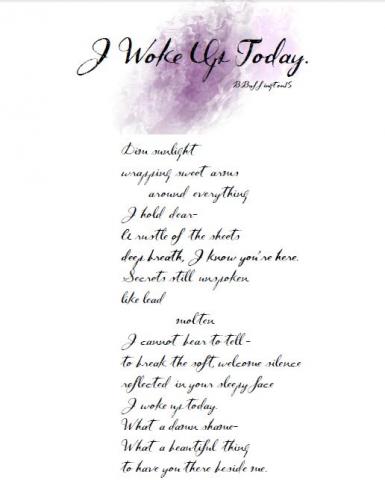 I Woke Up Today.
BBuffington15
Dim sunlight
wrapping sweet arms
around everything
I hold dear-
A rustle of the sheets
deep breath, I know you're here.
Secrets still unspoken
like lead
molten
I cannot bear to tell-
to break the soft, welcome silence
reflected in your sleepy face
I woke up today.
What a damn shame-
What a beautiful thing
to have you there beside me.